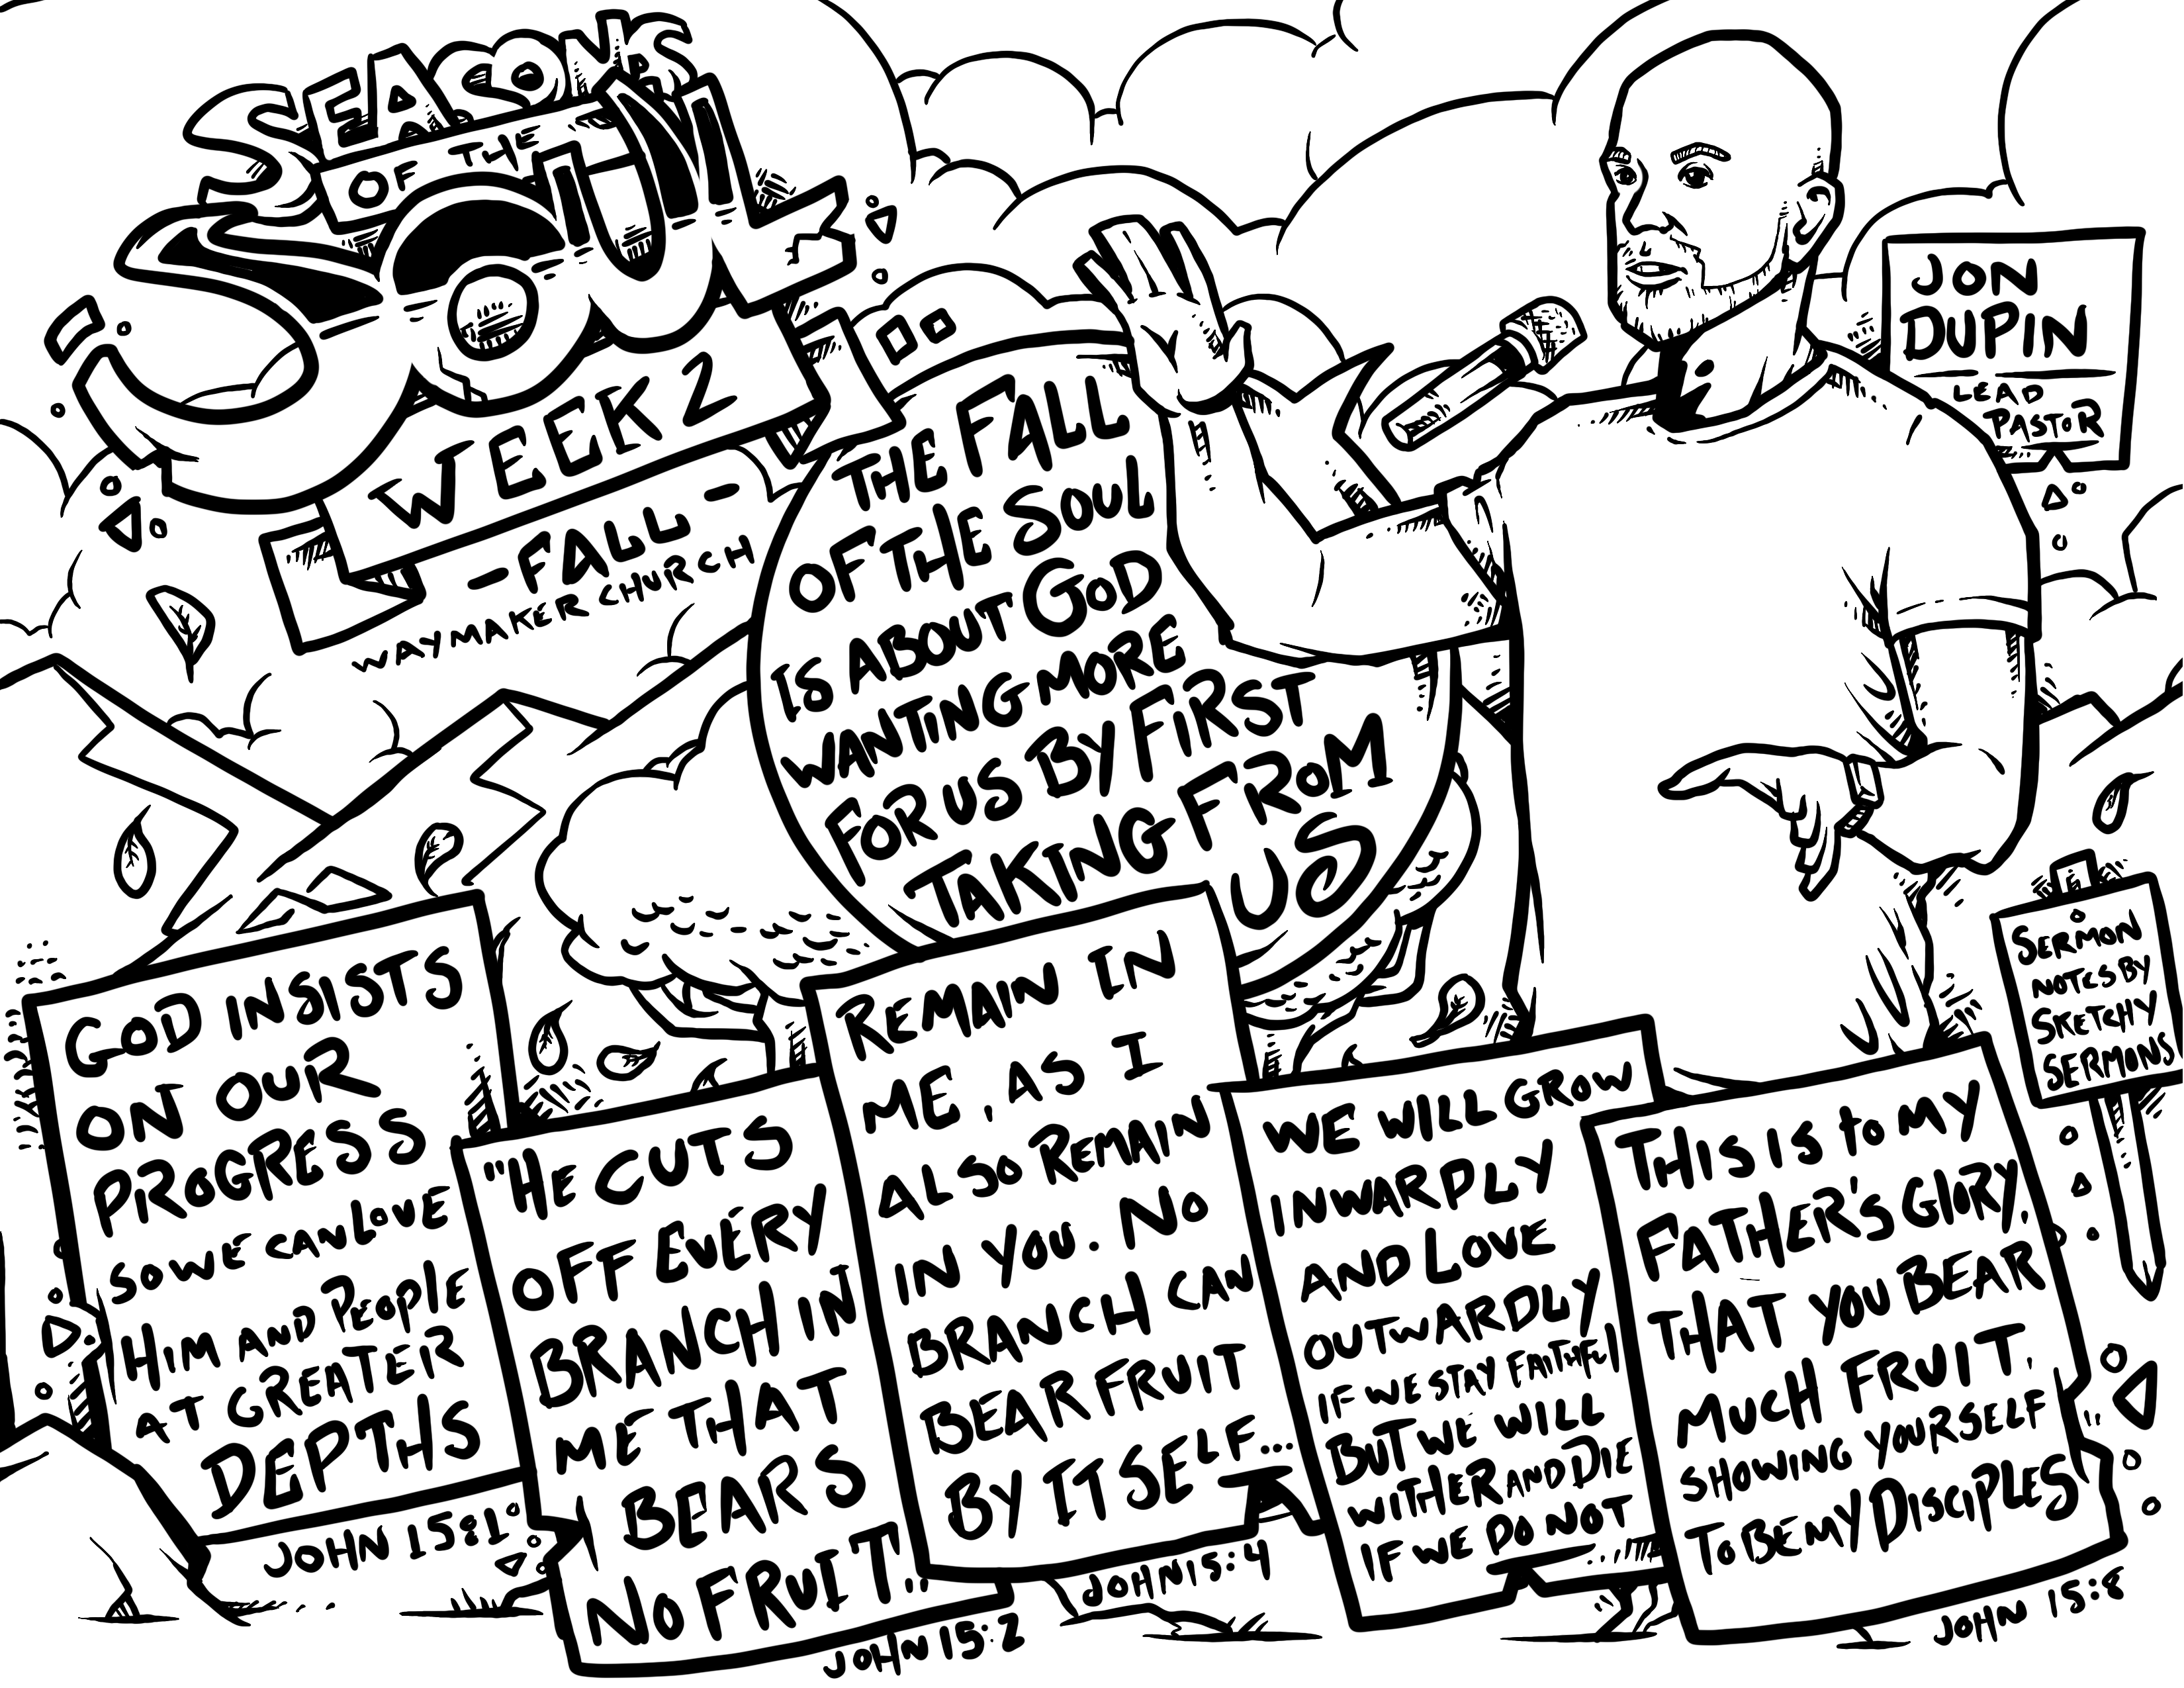 SEASONS
OF THE
SOUL
WEEK 2
- FALL -
WAYMAKER CHURCH
THE FALL
OF THE SOUL
IS ABOUT GOD
WANTING MORE
FOR US BY FIRST
TAKING FROM
US
JON
DUPIN
LEAD
PASTOR
SERMON
NOTES BY
SKETCHY
SERMONS
GOD INSISTS
ON OUR
PROGRESS
SO WE CAN LOVE
HIM AND PEOPLE
AT GREATER
DEPTHS
JOHN 15:1
"HE CUTS
OFF EVERY
BRANCH IN
ME THAT
BEARS
NO FRUIT"
JOHN 15:2
REMAIN IN
ME, AS I
ALSO REMAIN
IN YOU. NO
BRANCH CAN
BEAR FRUIT
BY ITSELF...
JOHN 15:4
WE WILL GROW
INWARDLY
AND LOVE
OUTWARDLY
IF WE STAY FAITHFUL
BUT WE WILL
WITHER AND DIE
IF WE DO NOT
THIS IS to MY
FATHER'S GLORY,
THAT YOU BEAR
MUCH FRUIT,
SHOWING YOURSELF
TO BE MY DISCIPLES
JOHN 15:8